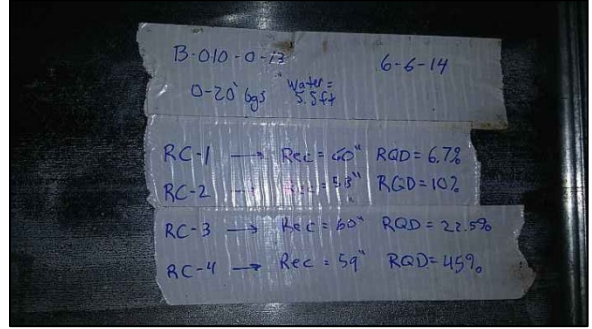 B-010-0-13 6-6-14
0-20' bgs Water = 5.5ft
RC-1 → Rec = 60" RQD = 6.7%
RC-2 → Rec = 58" RQD = 10%
RC-3 → Rec = 60" RQD = 22.5%
RC-4 → Rec = 59" RQD = 45%